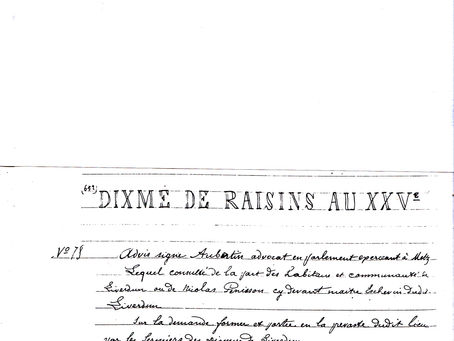 (613) DIXME DE RAISINS AU XXVe
No 75 Advis signé Aubertin advocat en parlement exercant à Metz
Lequel consulté de la part des habitans et communauté de
Liverdun ou de Nicolas Pénisson cy devant maitre Echevin dudt
Liverdun
Sur la demande former et portee en la prevoté dudit lieu
par les fermiers des dixmes de Liverdun